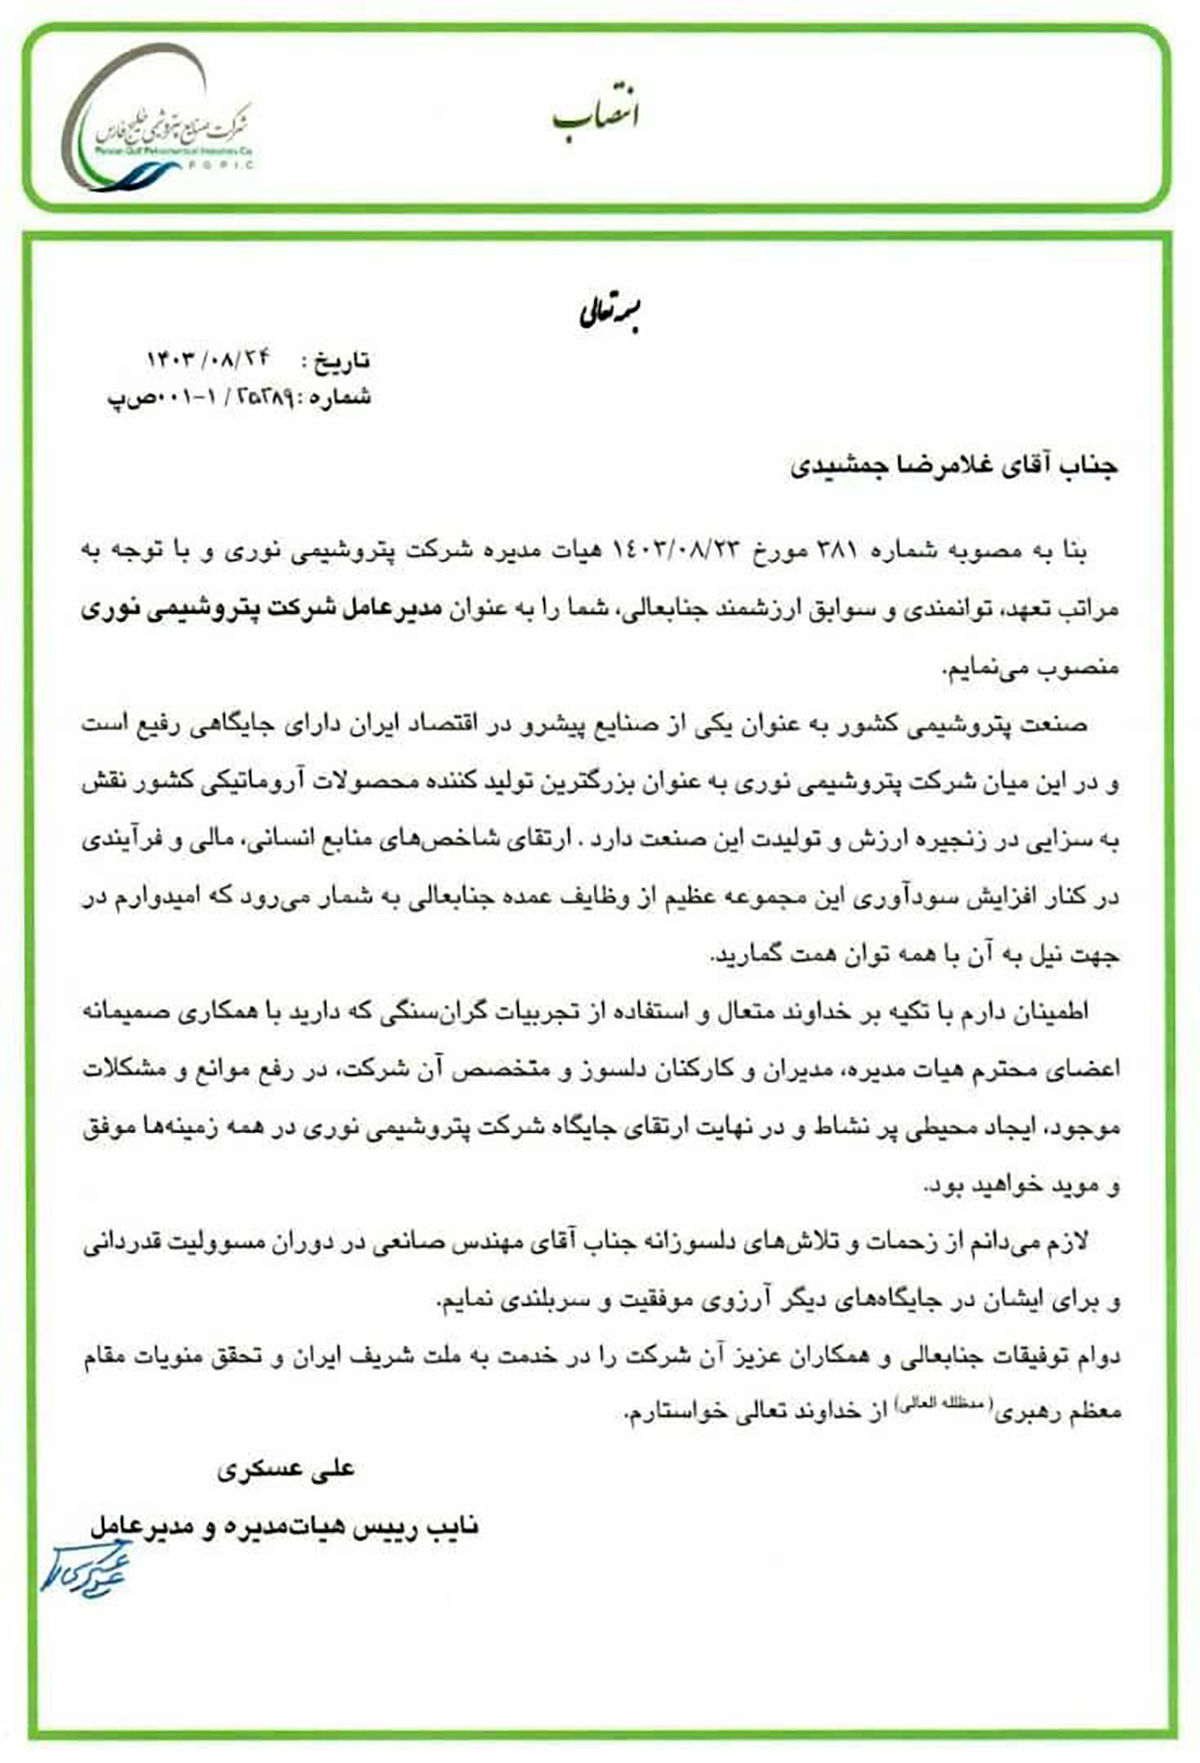 شرکت صنایع پتروشیمی خلیج فارس
Persian Gulf Petrochemical Industries Co.
PGPIC
انتصاب
بسمه تعالی
تاریخ : ۱۴۰۳/۰۸/۲۴
شماره : ۲۵۲۸۹ / ۱-۰۰۱ص‌پ
جناب آقای غلامرضا جمشیدی
بنا به مصوبه شماره ۳۸۱ مورخ ۱٤۰۳/۰۸/۲۳ هیات مدیره شرکت پتروشیمی نوری و با توجه به
مراتب تعهد، توانمندی و سوابق ارزشمند جنابعالی، شما را به عنوان مدیرعامل شرکت پتروشیمی نوری
منصوب می‌نمایم.
صنعت پتروشیمی کشور به عنوان یکی از صنایع پیشرو در اقتصاد ایران دارای جایگاهی رفیع است
و در این میان شرکت پتروشیمی نوری به عنوان بزرگترین تولید کننده محصولات آروماتیکی کشور نقش
به سزایی در زنجیره ارزش و تولیدت این صنعت دارد . ارتقای شاخص‌های منابع انسانی، مالی و فرآیندی
در کنار افزایش سودآوری این مجموعه عظیم از وظایف عمده جنابعالی به شمار می‌رود که امیدوارم در
جهت نیل به آن با همه توان همت گمارید.
اطمینان دارم با تکیه بر خداوند متعال و استفاده از تجربیات گران‌سنگی که دارید با همکاری صمیمانه
اعضای محترم هیات مدیره، مدیران و کارکنان دلسوز و متخصص آن شرکت، در رفع موانع و مشکلات
موجود، ایجاد محیطی پر نشاط و در نهایت ارتقای جایگاه شرکت پتروشیمی نوری در همه زمینه‌ها موفق
و موید خواهید بود.
لازم می‌دانم از زحمات و تلاش‌های دلسوزانه جناب آقای مهندس صانعی در دوران مسوولیت قدردانی
و برای ایشان در جایگاه‌های دیگر آرزوی موفقیت و سربلندی نمایم.
دوام توفیقات جنابعالی و همکاران عزیز آن شرکت را در خدمت به ملت شریف ایران و تحقق منویات مقام
معظم رهبری(مدظله العالی) از خداوند تعالی خواستارم.
علی عسکری
نایب رییس هیات‌مدیره و مدیرعامل